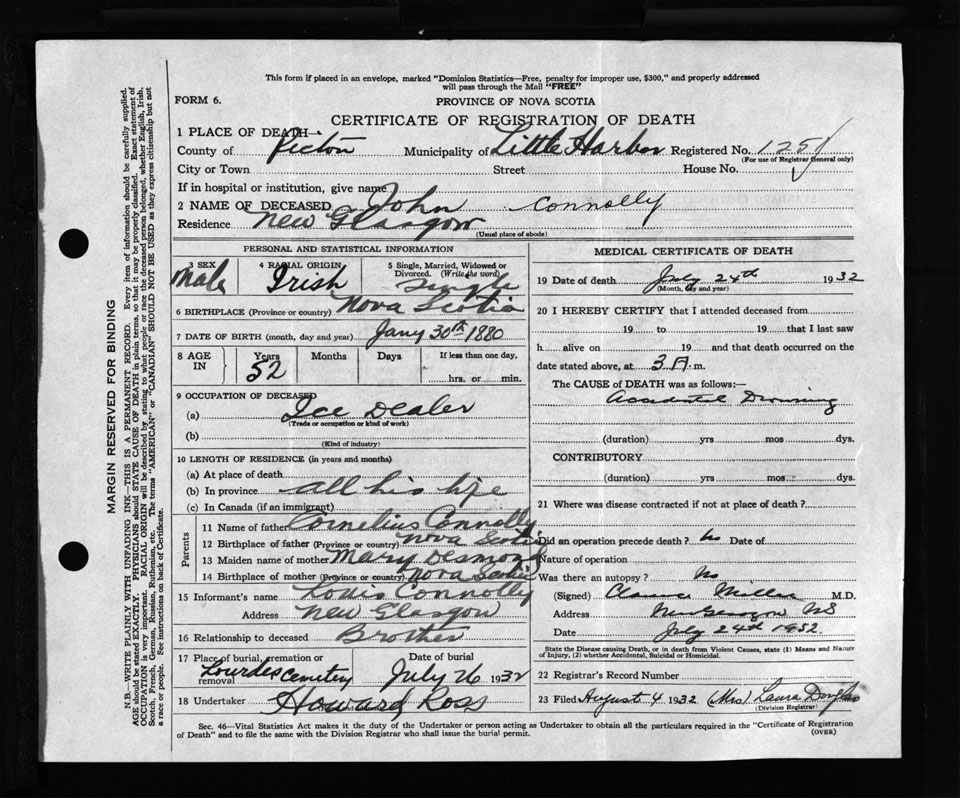 This form if placed in an envelope, marked "Dominion Statistics—Free, penalty for improper use, $300," and properly addressed
will pass through the Mail "FREE"
FORM 6.
PROVINCE OF NOVA SCOTIA
CERTIFICATE OF REGISTRATION OF DEATH
1 PLACE OF DEATH—
County of Pictou Municipality of Little Harbor Registered No. 1251
(For use of Registrar General only)
City or Town Street House No.
If in hospital or institution, give name
2 NAME OF DECEASED John Connolly
Residence New Glasgow
(Usual place of abode)
PERSONAL AND STATISTICAL INFORMATION
3 SEX 4 RACIAL ORIGIN 5 Single, Married, Widowed or
Divorced. (Write the word)
Male Irish Single
6 BIRTHPLACE (Province or country) Nova Scotia
7 DATE OF BIRTH (month, day and year) Jany 30th 1880
8 AGE IN Years Months Days If less than one day,
52
hrs. or min.
9 OCCUPATION OF DECEASED
(a) Ice Dealer
(Trade or occupation or kind of work)
(b)
(Kind of industry)
10 LENGTH OF RESIDENCE (in years and months)
(a) At place of death
(b) In province all his life
(c) In Canada (if an immigrant)
Parents
11 Name of father Cornelius Connolly
12 Birthplace of father (Province or country) Nova Scotia
13 Maiden name of mother Mary Desmond
14 Birthplace of mother (Province or country) Nova Scotia
15 Name of informant Louis Connolly
Address New Glasgow
16 Relationship to deceased Brother
17 Place of burial, cremation or removal Date of burial
Lourdes cemetery July 26 1932
18 Undertaker Howard Ross
MEDICAL CERTIFICATE OF DEATH
19 Date of death July 24th 1932
(Month, day and year)
20 I HEREBY CERTIFY that I attended deceased from
19 to 19 that I last saw
h alive on 19 and that death occurred on the
date stated above, at 3 A. m.
The CAUSE of DEATH was as follows:—
Accidental Drowning
(duration) yrs mos dys.
CONTRIBUTORY
(duration) yrs. mos. dys.
21 Where was disease contracted if not at place of death?
Did an operation precede death? No Date of
Nature of operation
Was there an autopsy? No
(Signed) Clarence Miller M.D.
Address New Glasgow NS
Date July 24th 1932
State the Disease causing Death, or in death from Violent Causes, state (1) Means and Nature
of Injury, (2) whether Accidental, Suicidal or Homicidal.
22 Registrar's Record Number
23 Filed August 4 1932 (Mrs) Laura Douglas
(Division Registrar)
Sec. 46—Vital Statistics Act makes it the duty of the Undertaker or person acting as Undertaker to obtain all the particulars required in the "Certificate of Registration
of Death" and to file the same with the Division Registrar who shall issue the burial permit.
(OVER)
MARGIN RESERVED FOR BINDING
N.B.—WRITE PLAINLY WITH UNFADING INK—THIS IS A PERMANENT RECORD. Every item of information should be carefully supplied.
AGE should be stated EXACTLY. PHYSICIANS should STATE CAUSE OF DEATH in plain terms, so that it may be properly classified. Exact statement of
OCCUPATION is very important. RACIAL ORIGIN will be described by stating to what people or race the deceased person belonged, whether English, Irish,
Scotch, French, German, Russian, Ruthenian, etc. The terms "AMERICAN" or "CANADIAN" SHOULD NOT BE USED as they express citizenship but not
a race or people. See instructions on back of Certificate.